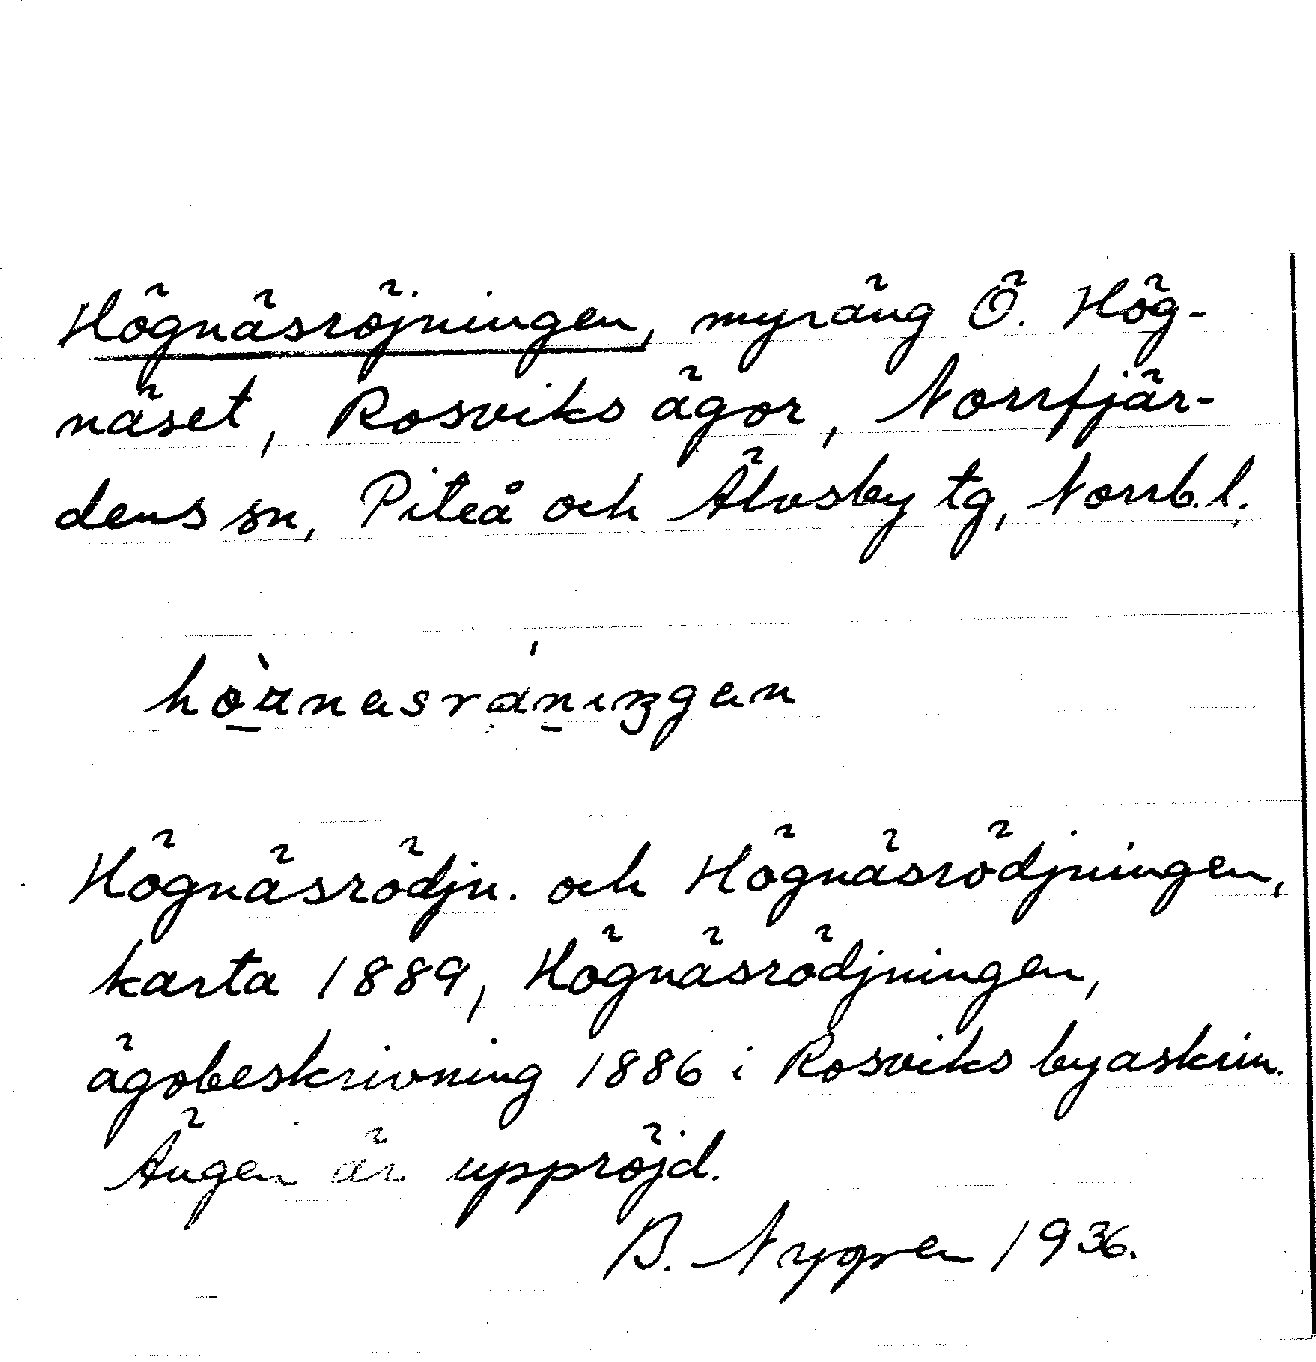 Högnäsröjningen, myräng Ö. Hög-
näset, Rosviks ägor, Norrfjär-
dens sn, Piteå och Älvsby tg, Norrb. l.
Högnäsrödjn. och Högnäsrödjningen,
karta 1889, Högnäsrödjningen,
ägobeskrivning 1886 i Rosviks byaskrin.
Ängen är uppröjd.
B. Nygren 1936.